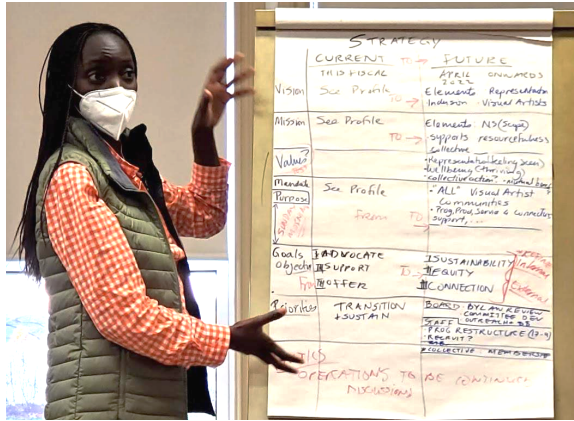 STRATEGY
CURRENT TO → FUTURE
THIS FISCAL APRIL 2022 ONWARDS
Vision See Profile TO → Elements Representation
Inclusion · Visual Artists
Mission See Profile TO → Elements NS (Scope)
supports resourcefulness
collective
Values? · Representation (being seen)
· wellbeing (thriving)
· collective action?
Mandate See Profile · "ALL" Visual Artist
Purpose Communities
From TO → Prog, Prov, Serve & connectors
support, ...
Goals I ADVOCATE I SUSTAINABILITY Internal
Objective II SUPPORT II EQUITY
III OFFER III CONNECTION External
Priorities TRANSITION BOARD BYLAW REVIEW
+ SUSTAIN COMMITTEE DEV
OUTREACH
STAFF
· PROG RESTRUCTURE
· RECRUIT?
· COLLECTIVE MEMBERSHIP
OPERATIONS TO BE CONTINUED
DISCUSSIONS